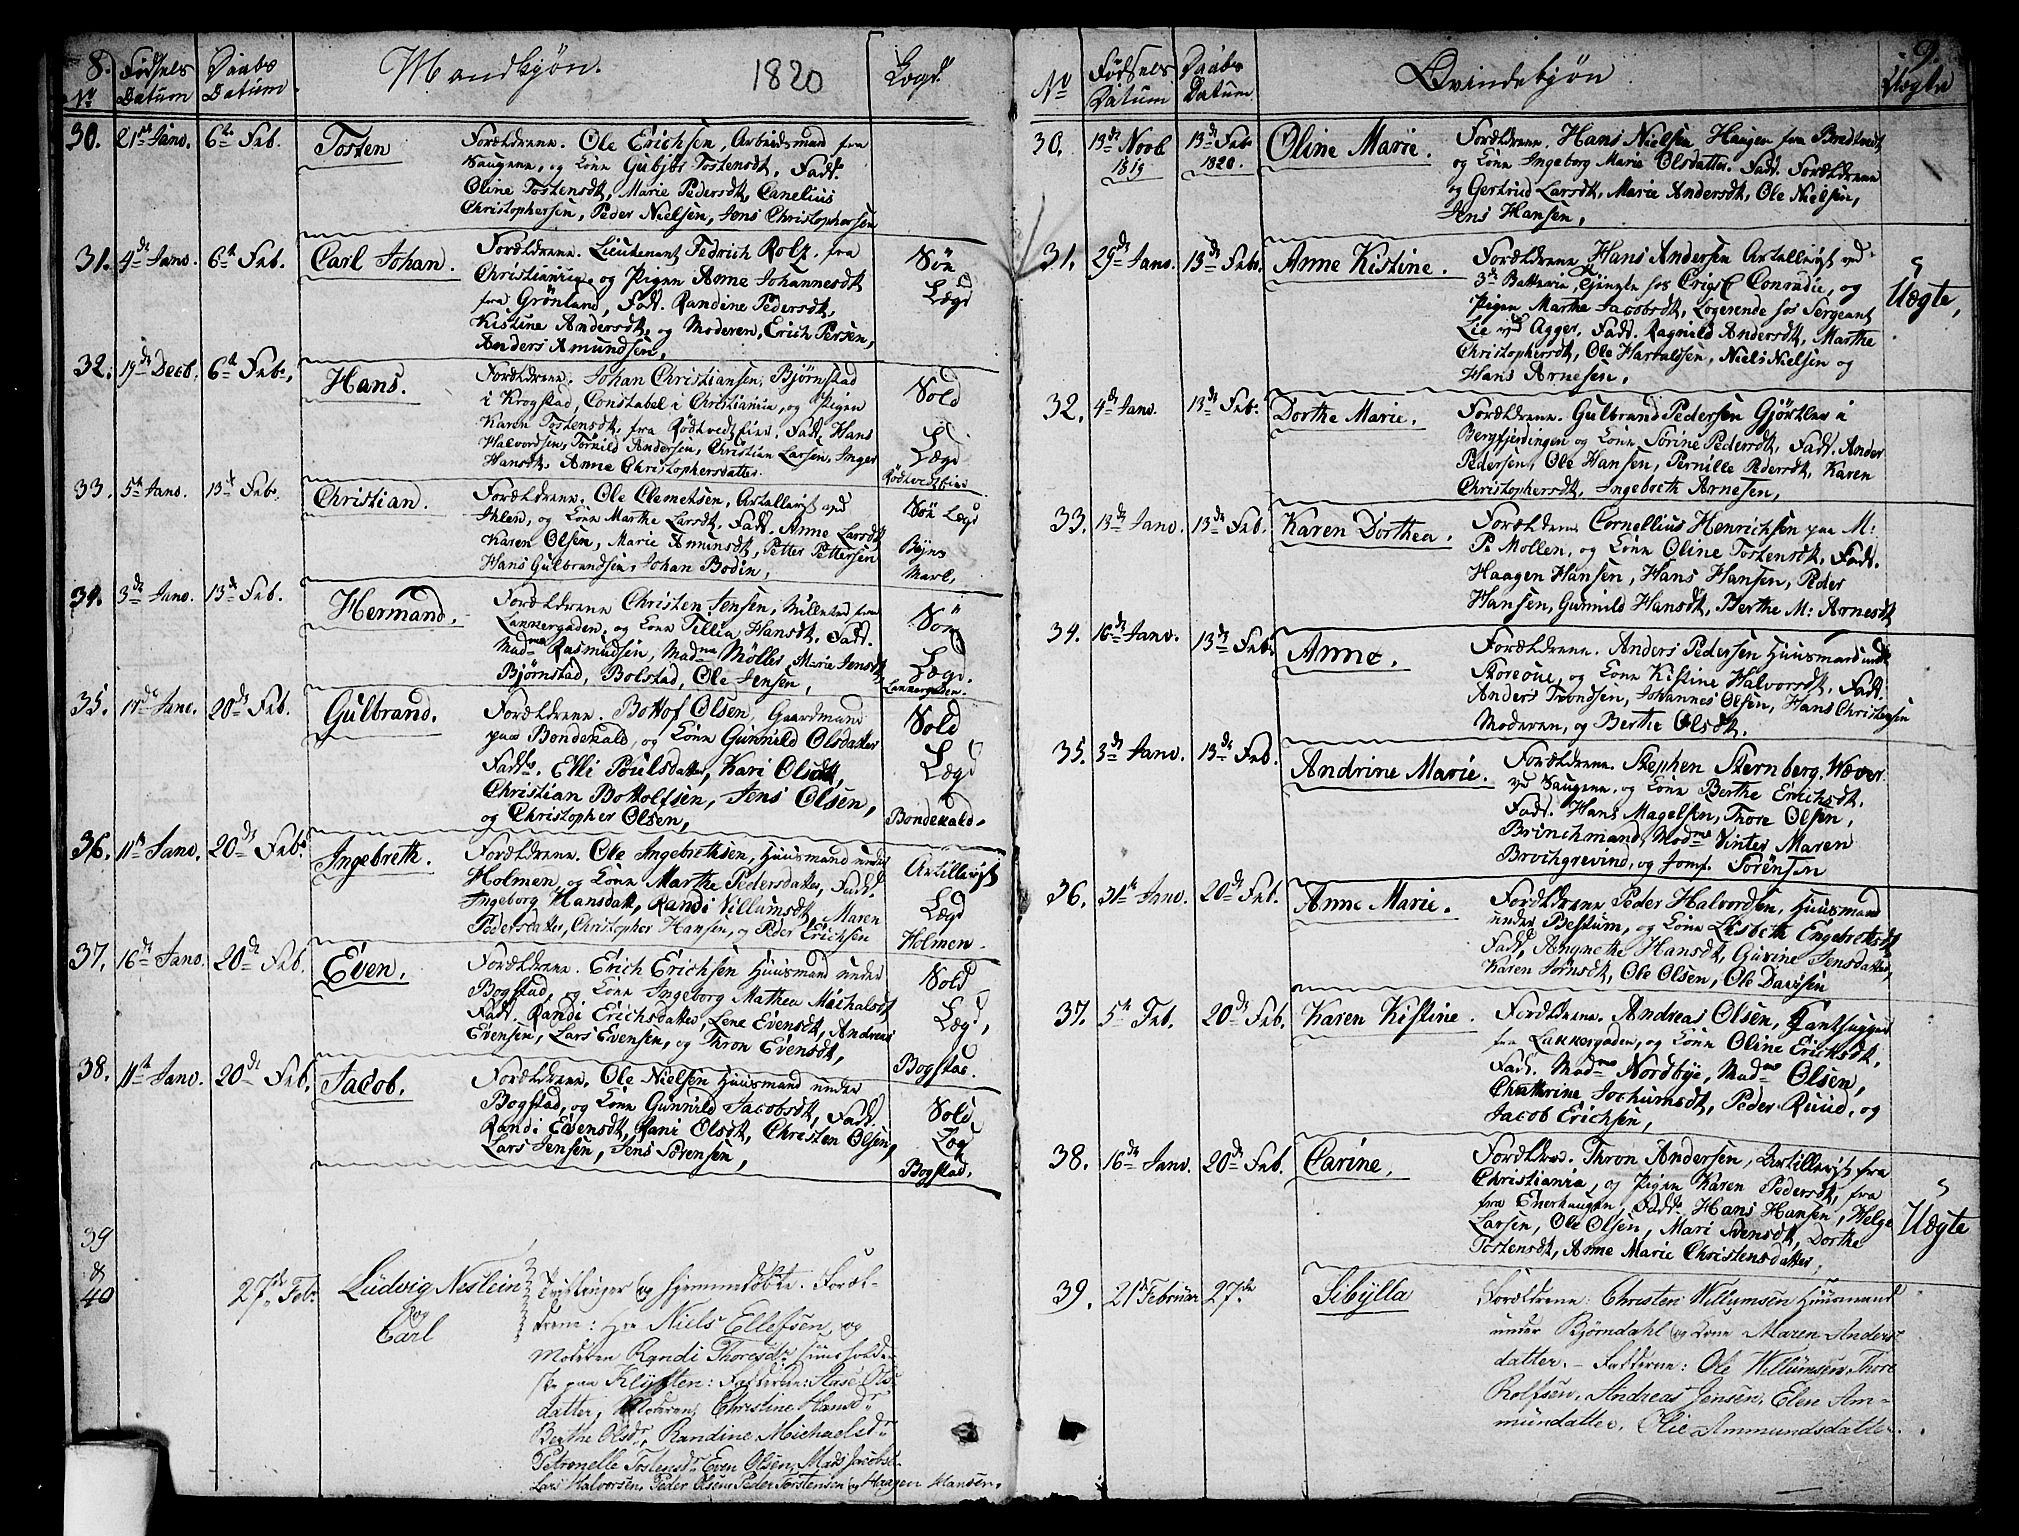 8.
Mandkjøn.
1820
Lægd
No
Fødsels Datum
Daabs Datum
30. 21de Janv. 6te Feb. Tosten
Forældrene. Ole Erichsen, Arbeidsmad fra
Saugene, og Konn Gubjør Tostensdt, Fadr
Oline Tostensdt, Marie Pedersdt, Canelius
Christophersen, Peder Nielsen, Jens Christophersen
31. 4de Janv. 6te Feb. Carl Johan.
Forældrene. Lieutenant Fedrich Rolf, fra
Christiania og Pigen Anne Johannesdt
fra Grønland, Fad. Randine Pedersdt,
Kistine Andersdt, og Moderen, Erich Persen,
Anders Amundsen,
Søn
Lægd
32. 19de Decb. 6te Feb. Hans.
Forældrene. Johan Christiansen, Bjørnstad
i Krogstad, Constabel i Christiania, og Pigen
Karen Tostensdt, fra Rødtvedt Eier. Fadr. Hans
Halvordsen, Tørnild Andersen, Christian Larsen, Inger
Hansdt, Anne Christophersdatter.
Sold
Lægd
Rødtvedt Eier
33. 5te Janv. 13de Feb. Christian.
Forældrene. Ole Clemetsen, Artallerist ved
Ihlen, og Konn Marthe Larsdt, Fadr. Anne Larsdt
Karen Olsen, Marie Amunsdt, Petter Pettersen
Hans Gulbrandsen, Johan Bodin,
Søn Lægd
Byens
Mark,
34. 3de Janv. 13de Feb. Hermand.
Forældrene Christen Jensen, fra
Lakkergaden, og Konn Tillia Hansdt. Fadr.
Madme Rasmudsen, Madme Møller, Marie Jensdt,
Bjørnstad, Bolstad, Ole Jensen,
Søn
Lægd.
Lakkergaden.
35. 20de Feb. Gulbrand.
Forældrene. Bottof Olsen, Gaardmand
paa Bondekald, og Konn Gunnild Olsdatter
Fadr. Elli Poulsdatter, Kari Olsdt,
Christian Bottolfsen, Jens Olsen,
og Christopher Olsen,
Sold
Lægd
Bondekald.
36. 11te Janv. 20de Feb. Ingebreth.
Forældrene. Ole Ingebrethsen, Huusmand under
Holmen, og Konn Marthe Pedersdatter, Fadr.
Ingeborg Hansdatt, Randi Villumsdt, Maren
Pedersdatter, Christopher Hansen, og Peder Erichsen
Artillerist
Lægd
Holmen.
37. 16de Janv. 20de Feb. Even.
Forældrene. Erich Erichsen Huusmand under
Bogstad, og Konn Ingeborg Mathea Michalsdt
Fadr. Randi Erichsdatter, Lene Evensdt, Andreas
Evensen, Lars Evensen, og Thron Evensdt,
Sold
Lægd,
Bogstad.
38. 11te Janv. 20de Feb. Jacob.
Forældrene. Ole Nielsen Huusmand under
Bogstad, og Konn Gunnild Jacobsdt, Fadr.
Randi Evensdt, Rani Olsdt, Christen Olsen,
Lars Jensen, Jens Sørensen,
Sold
Læg
Bogstad.
39 & 40 27de Febr Ludvig Neslein og Carl
Tvillinger og hjemmedøbte. Foræl-
drene: Hr Niels Ellefsen og
Moderen Randi Thoresdr huusholder-
ske paa Klyften: Fadderne: Aase Ols-
datter, Moderen, Christine Hansdr
Berthe Olsdr, Randine Michaelsdr
Petronelle Tostensdr Even Olsen, Mads Jacobs.
Lars Halvorsen, Peder Olsen, Peder Torstensen og Haagen Hansen.
9.
Qvindekjøn
Uægte
No
Fødsels Datum
Daabs Datum
30. 13de Novb 1819 13de Feb 1820. Oline Marie.
Forældrene. Hans Nielsen Haugen fra Bredtvedt,
og Konn Ingeborg Marie Olsdatter. Fadr. Forældrene
og Gertrud Larsdt, Marie Andersdt, Ole Nielsen,
Jens Hansen,
31. 29de Janv. 13de Feb. Anne Kistine.
Forældrene. Hans Andersen Artallerist ved
3de Batterie, tjenste hos Conradie, og
Pigen Marthe Jacobsdt, Logerende hos Sergeant
Lie ved Agger. Fadr. Ragnild Andersdt, Marthe
Christophersdt, Ole Harraldsen, Niels Nielsen og
Hans Arnesen.
Uægte,
32. 4de Janv. 13de Feb. Dorthe Marie.
Forældrene. Gulbrand Pedersen Gjørtler i
Bergfjerdingen og Konn Sørine Pedersdt, Fadr. Ander
Pedersen, Ole Hansen, Pernille Pedersdt, Karen
Christophersdt, Ingebreth Arnesen,
33. 13de Janv. 13de Feb. Karen Dorthea.
Forældrene Cornellius Henrichsen paa M:
Pe Møllen, og Konn Oline Tostensdt, Fadr.
Haagen Hansen, Hans Hansen, Peder
Hansen, Gunnild Hansdt, Berthe M: Arnesdt
34. 16de Janv. 13de Feb. Anne.
Forældrene. Anders Pedersen Huusmand under
Storeøue, og Konn Kistine Halvorsdt. Fadr.
Anders Trondsen, Johannes Olsen, Hans Christensen
Moderen, og Berthe Olsdt.
35. 3de Janv. 13de Feb. Andrine Marie.
Forældrene. Stephen Sternberg, Wæver
ved Saugene. og Konn Berthe Erichsdt.
Fadr. Hans Magelsen, Thore Olsen,
Brinchmand, Madme Vinter Maren
Brochgrevind, og Jomf. Sørensen
36. 31te Janv. 20de Feb. Anne Marie.
Forældrene Peder Halvordsen, Huusmand
under Bestum, og Konn Lisbeth Engebretsdt
Fadr, Angnethe Hansdt, Gurine Jensdatter,
Karen Jørnsdt, Ole Olsen, Ole Davisen
37. 5te Feb. 20de Feb. Karen Kistine.
Forældrene. Andreas Olsen, Tanthugger
fra Lakkergaden, og Konn Oline Ericksdt,
Fadr. Madme Nordbye, Madme Olsen,
Chathrine Jochumsdt, Peder Ruud, og
Jacob Erichsen,
38. 16de Janv. 20de Feb. Carine,
Forældrene. Thron Andersen, Artillerist fra
Christiania, og Pigen Karen Pedersdt, fra
fra Enerhaugen, Fadr. Hans Hansen, Helge
Larsen, Ole Olsen, Mari Svensdt, Dorthe
Tostensdt, Anne Marie Christensdatter,
Uægte
39. 21de Februar 27de Sibylla
Forældrene: Christen Willumsen Huusmand
under Bjørndahl og Kone Maren Anders-
datter. – Fadderne: Ole Willumsen, Thore
Rolfsen, Andreas Jensen, Elen Am-
mundatter, Olie Ammundsdatter.